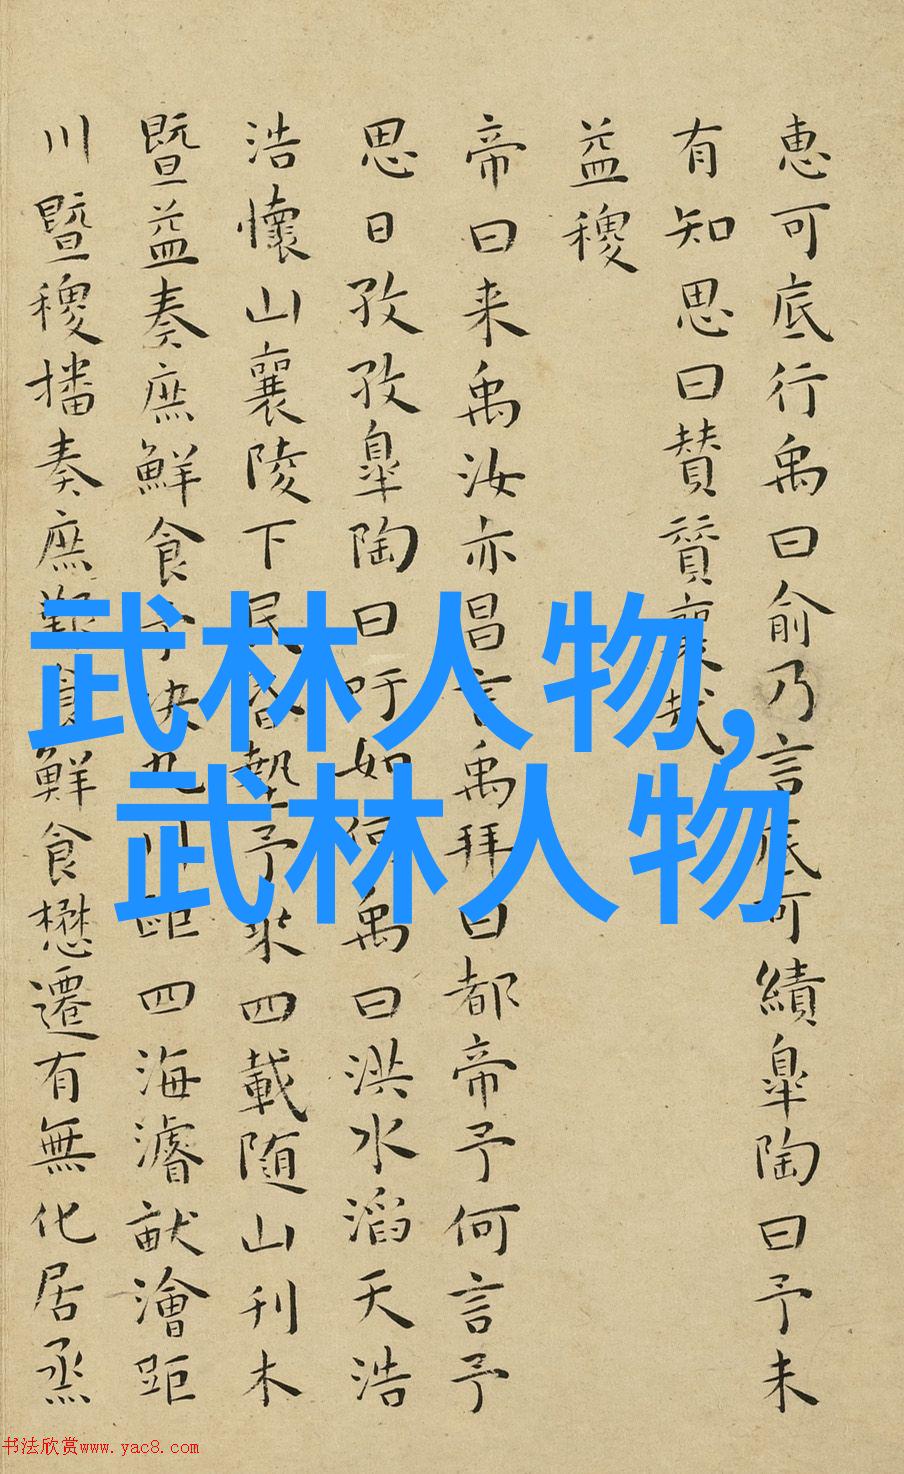 惠可底行禹曰俞乃言底可績皐陶曰予未
有知思曰賛賛襄哉
益稷
帝曰来禹汝亦昌言禹拜曰都帝予何言予
思日孜孜皐陶曰吁如何禹曰洪水滔天浩
浩懷山襄陵下民昏墊予乘四載随山刊木
暨益奏庶鮮食予決九川距四海濬畎澮距
川暨稷播奏庶艱食鮮食懋遷有無化居烝
武林人物,
武林人物
书法欣赏www.yac8.com